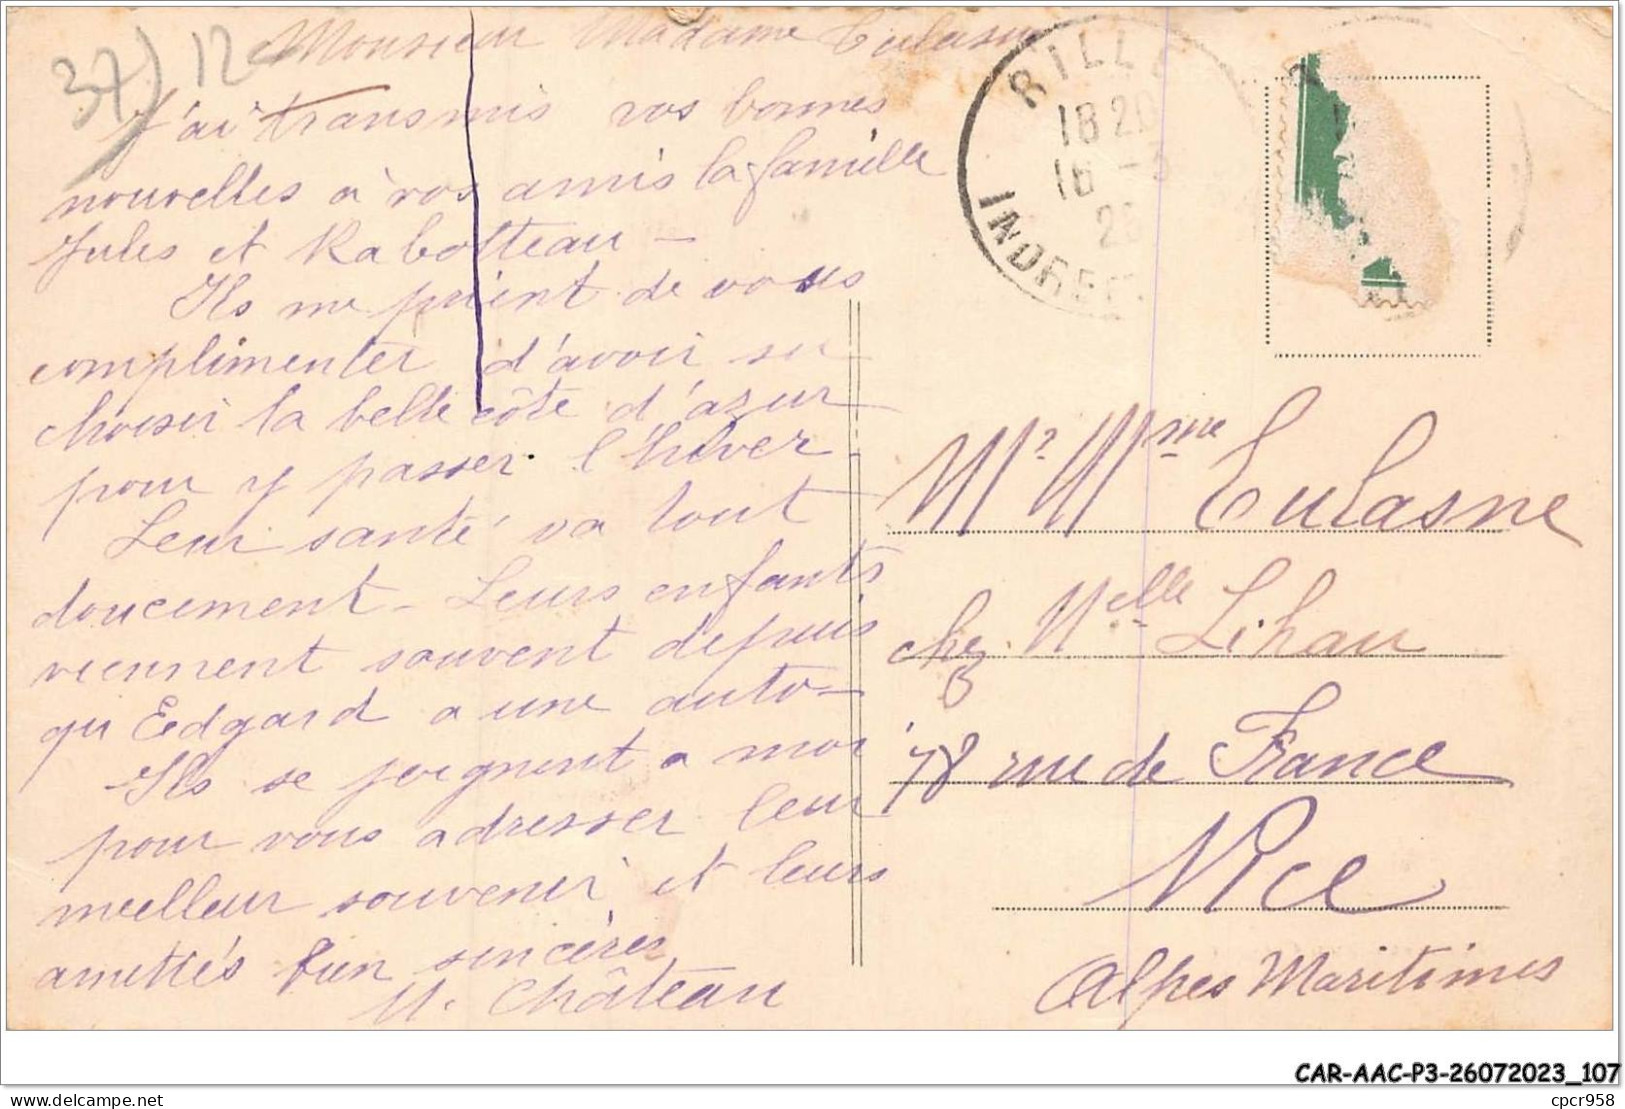 37) 12
Monsieur Madame Eulasne
J'ai transmis vos bonnes
nouvelles à vos amis la famille
Jules et Rabotteau —
Ils me prient de vous
complimenter d'avoir su
choisir la belle côte d'azur
pour y passer l'hiver
Leur santé va tout
doucement - Leurs enfants
viennent souvent depuis
qu'Edgard a une auto -
Ils se joignent a moi
pour vous adresser leur
meilleur souvenir et leurs
amitiés bien sincères
M. Château
RILLÉ
18 20
16 -
28
INDRE-ET
Mr Mme Eulasne
chez Melle Lihau
78 rue de France
Nice
Alpes Maritimes
CAR-AAC-P3-26072023_107
delcampe.net
cpcr958